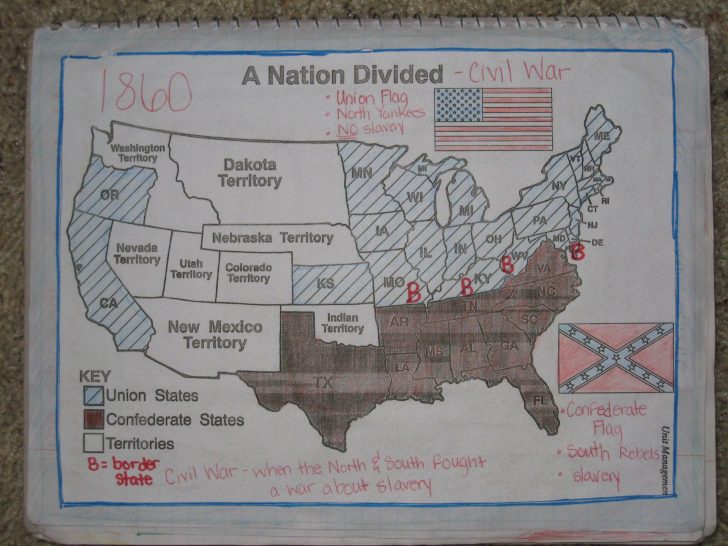 1860
A Nation Divided - Civil War
• Union Flag
• North Yankees
• NO slavery
Washington
Territory
Dakota
Territory
OR
MN
WI
MI
MI
ME
VT
NH
MA
RI
CT
NY
PA
NJ
DE
MD
Nevada
Territory
Utah
Territory
Colorado
Territory
Nebraska Territory
IA
IL
IN
OH
WV
VA
KS
MO
KY
B
B
B
B
CA
New Mexico
Territory
Indian
Territory
TN
NC
SC
AR
MS
AL
GA
LA
TX
FL
KEY
Union States
Confederate States
Territories
B = border
state
Civil War - when the North & South fought
a war about slavery
• Confederate
Flag
• South Rebels
• slavery